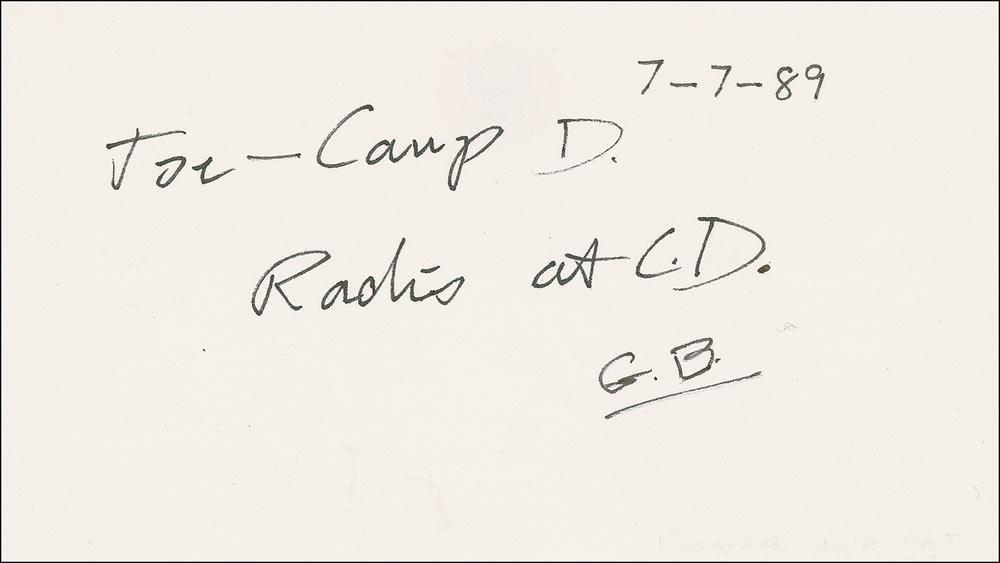 7-7-89
Joe-Camp D.
Radio at C.D.
G.B.